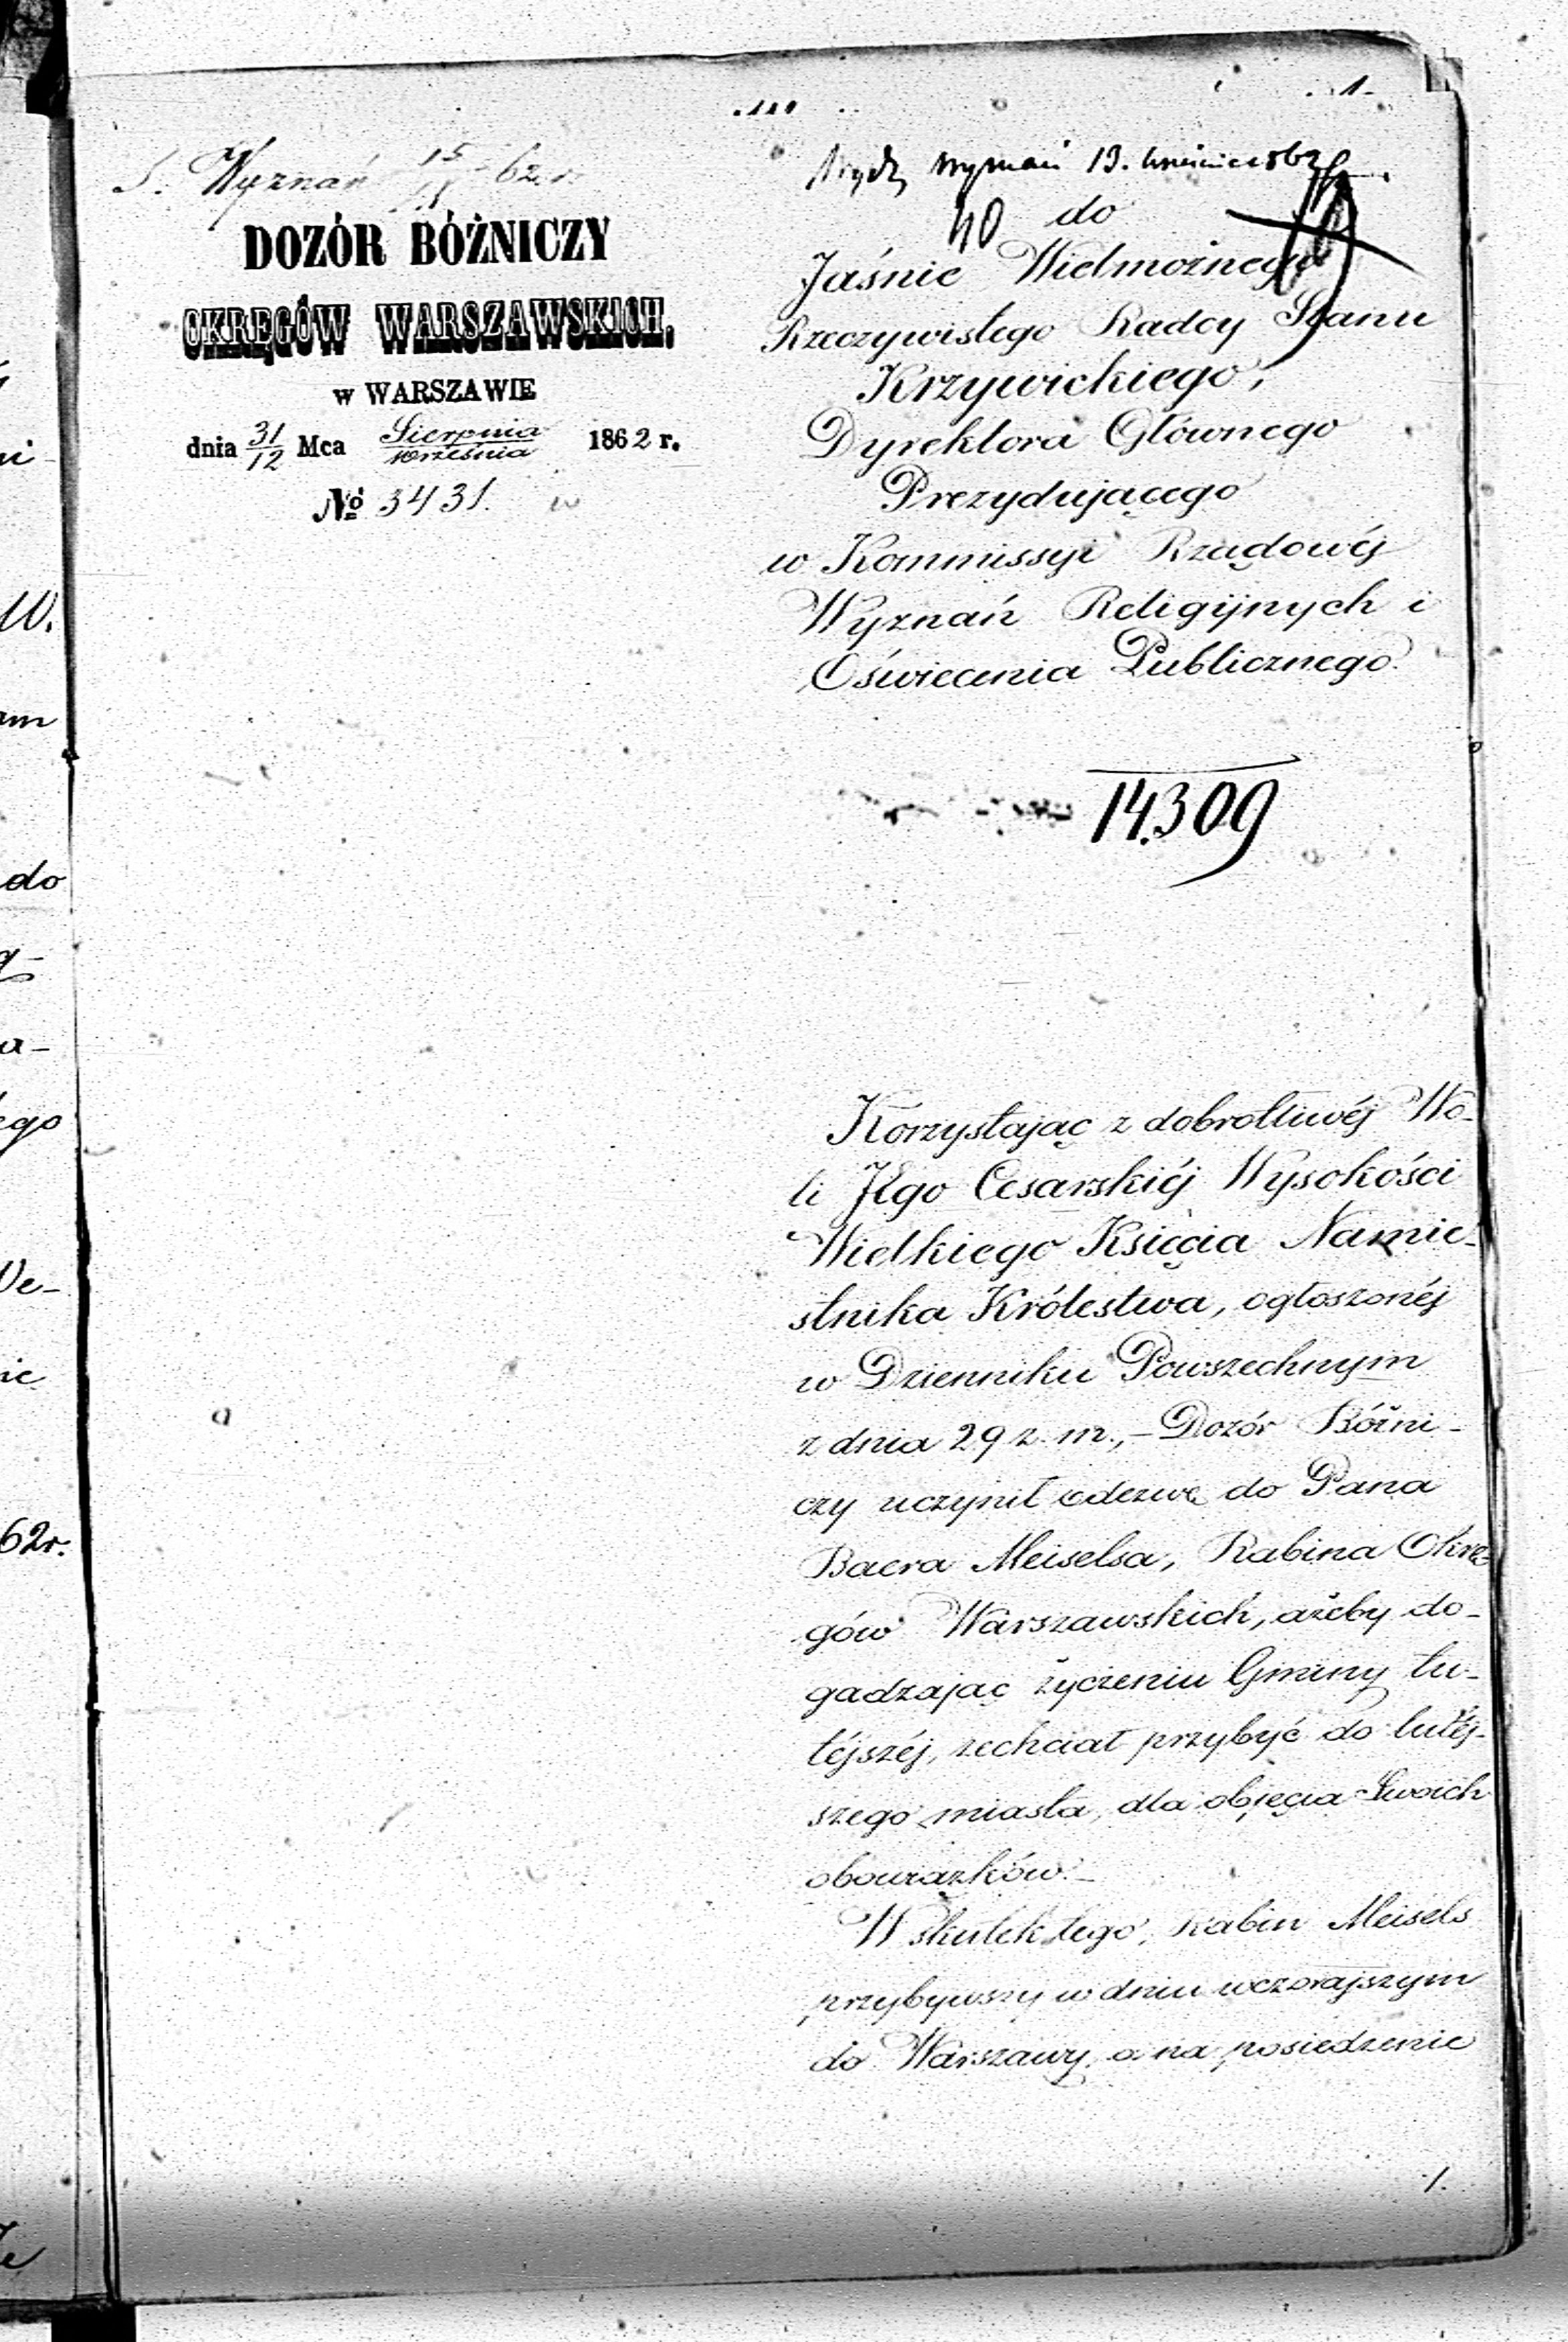 S. Wyznań 15/IX 62 r.
DOZÓR BÓŻNICZY
OKRĘGÓW WARSZAWSKICH,
w WARSZAWIE
dnia 31/12 Mca Sierpnia/Września 1862 r.
№ 3431.
Wyznań 13. Września 862
40 do
Jaśnie Wielmożnego
Rzeczywistego Radcy Stanu
Krzywickiego,
Dyrektora Głównego
Prezydującego
w Kommissyi Rządowéj
Wyznań Religijnych i
Oświecenia Publicznego.
14.309
Korzystając z dobrotliwéj Wo-
li Jego Cesarskiéj Wysokości
Wielkiego Księcia Namie-
stnika Królestwa, ogłoszonéj
w Dzienniku Powszechnym
z dnia 29 z. m., – Dozór Bóżni-
czy uczynił odezwę do Pana
Baera Meiselsa, Rabina Okrę-
gów Warszawskich, ażeby do-
gadzając życzeniu Gminy tu-
téjszéj, zechciał przybyć do tutéj-
szego miasta, dla objęcia Swoich
obowiązków. –
W skutek tego, Rabin Meisels
przybywszy w dniu wczorajszym
do Warszawy, a na posiedzenie
/.